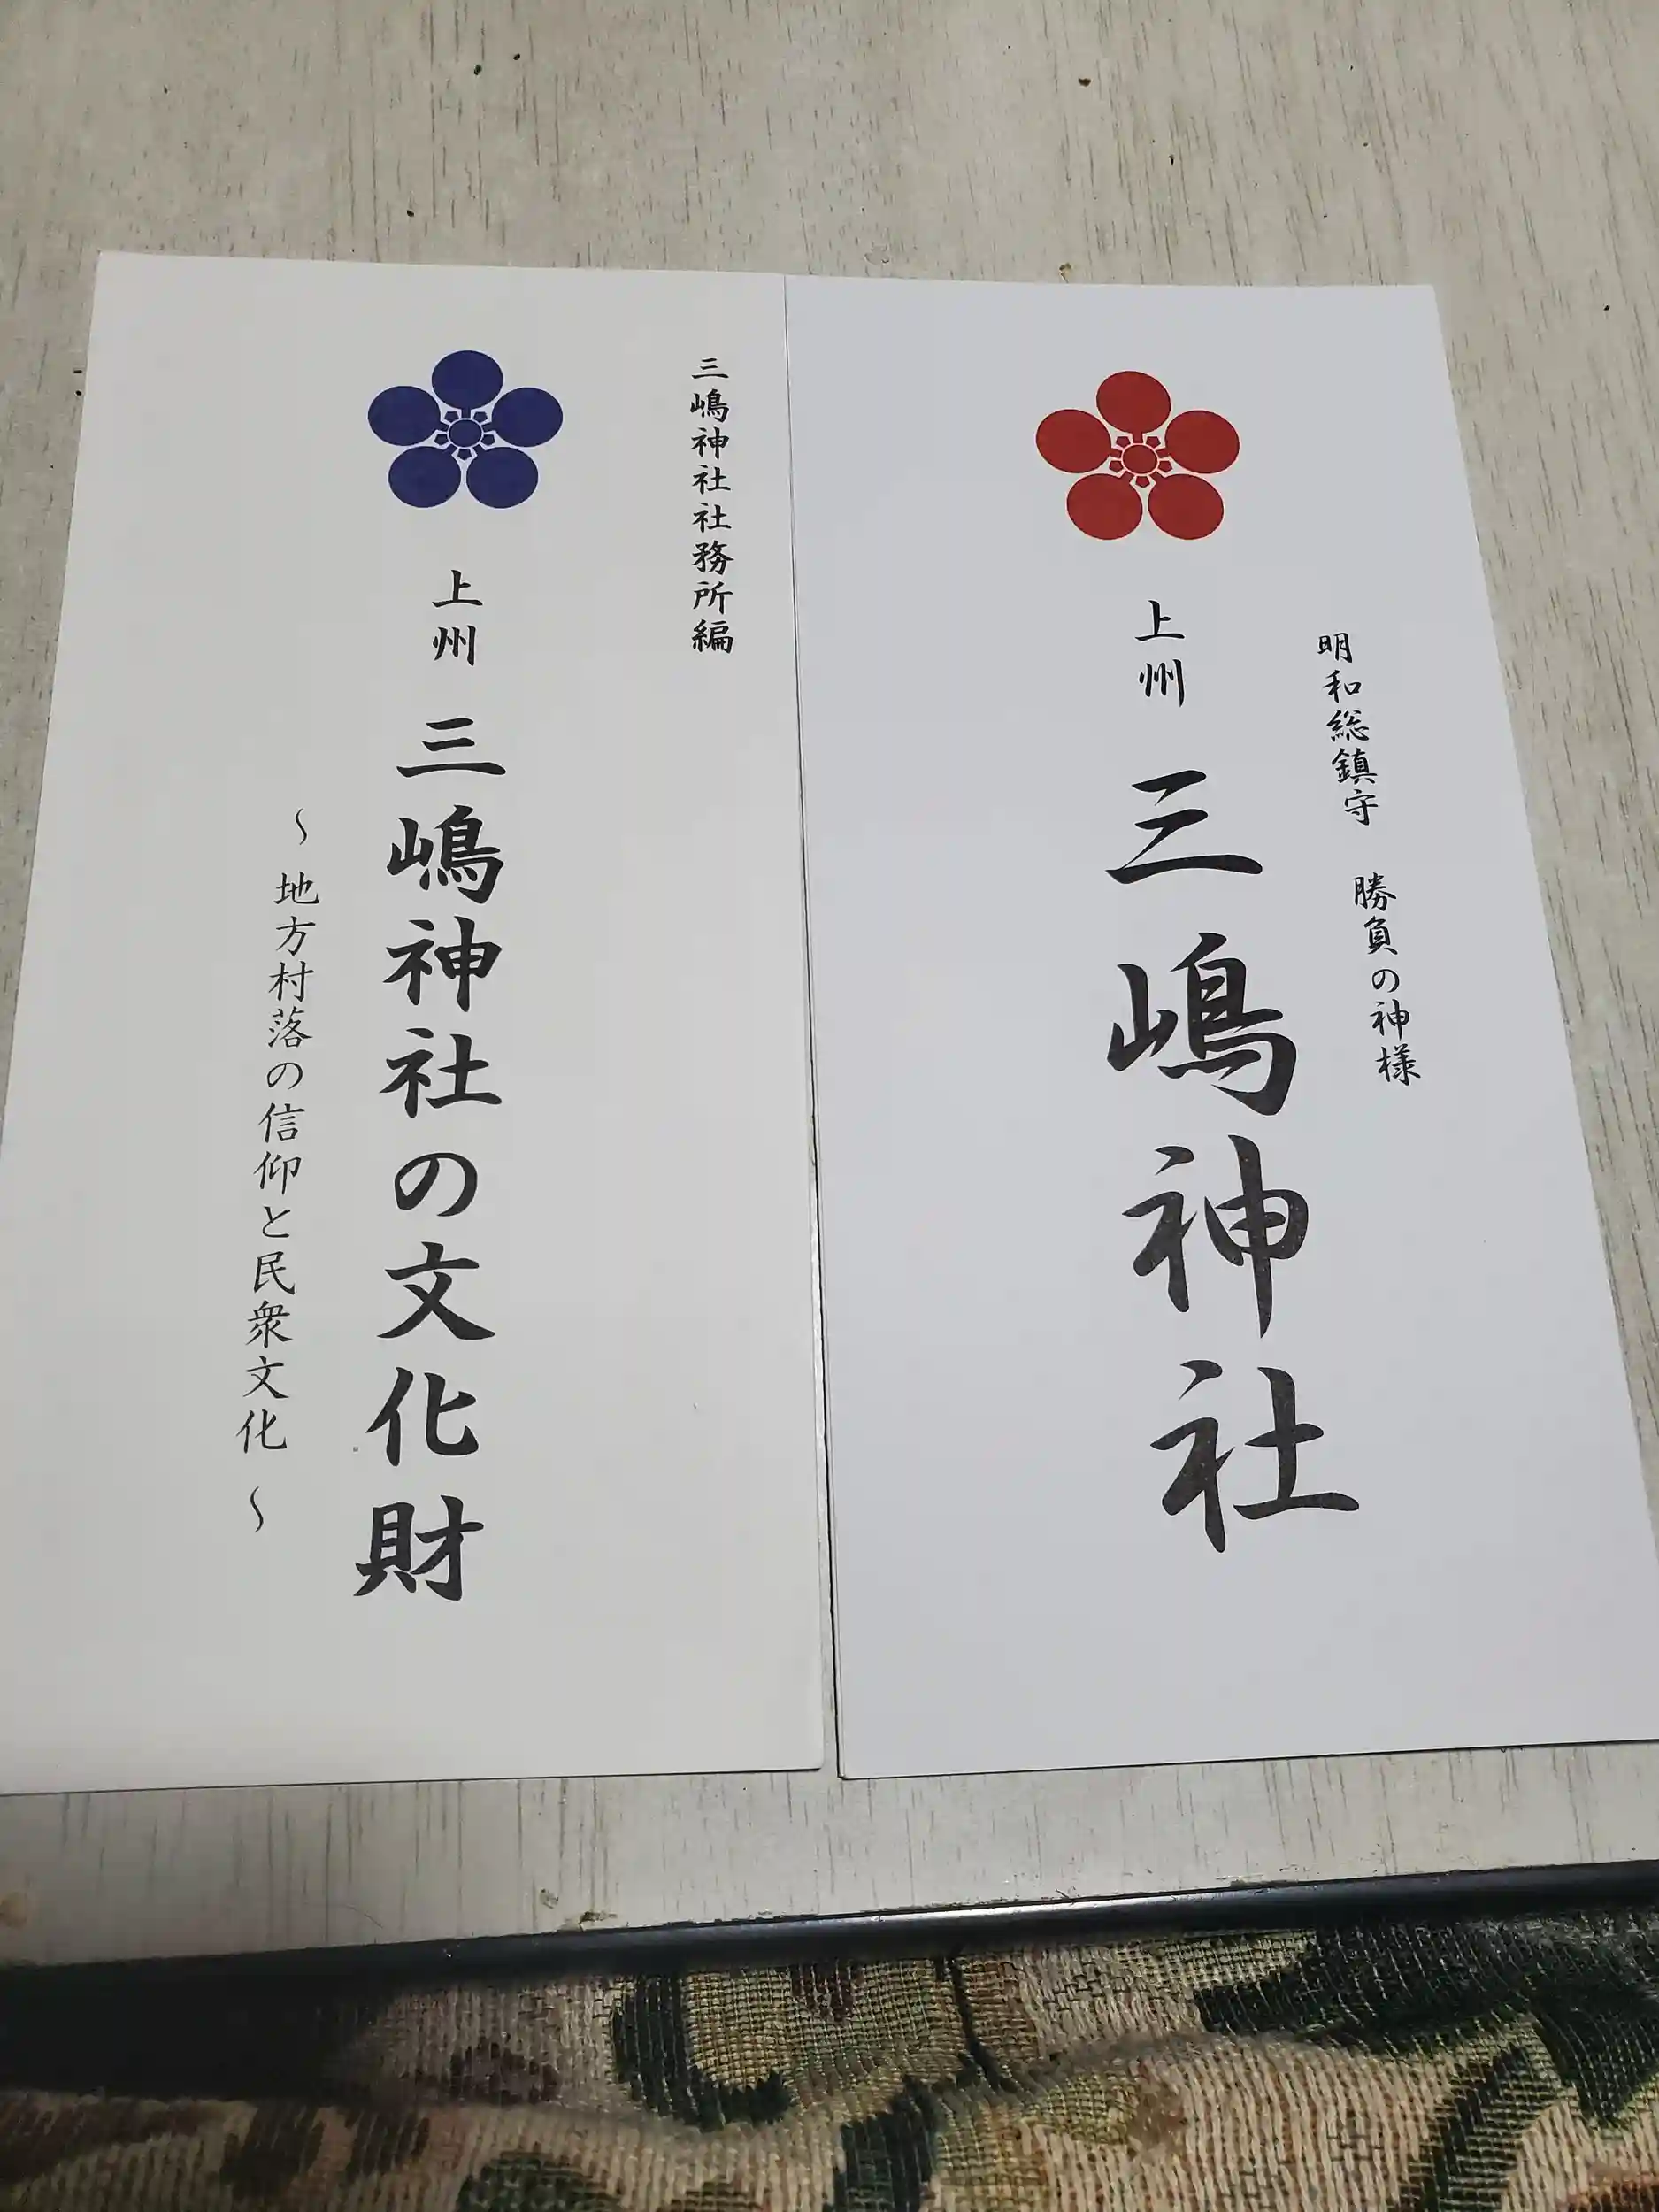 明和総鎮守 勝負の神様
上州 三嶋神社
三嶋神社社務所編
上州 三嶋神社の文化財
～地方村落の信仰と民衆文化～